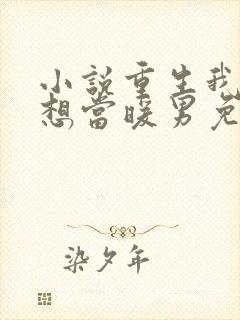 小説重生我
想當暖男免
染夕年